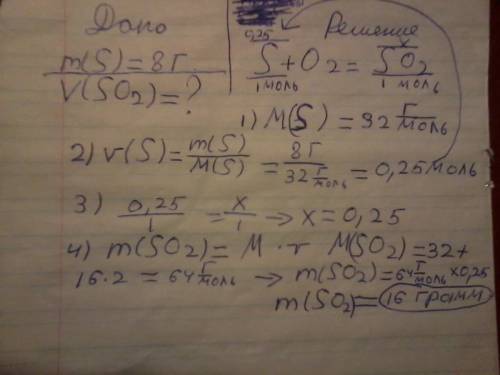 Дано
m(S)=8г
V(SO2)=?
Решение
0,25 x
S+O2=SO2
1моль 1 моль
1) M(S) = 32 г/моль
2) v(S)=m(S)/M(S)=8г/32 г/моль=0,25моль
3) 0,25/1=x/1→x=0,25
4) m(SO2)=M·r M(SO2)=32+
16·2=64 г/моль → m(SO2)=64 г/моль×0,25
m(SO2)=16 грамм